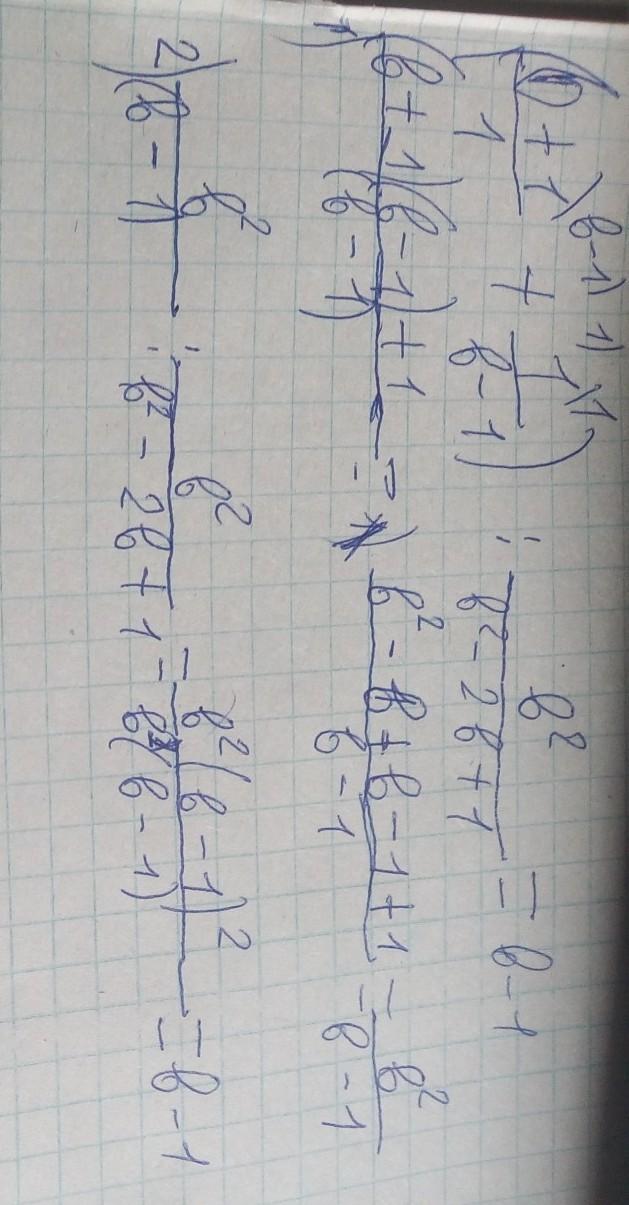 ((b + 1)/1 \b-1 + 1/(b - 1) \1) : b²/(b² - 2b + 1) = b - 1
1) ((b + 1)(b - 1) + 1)/(b - 1) = (b² - b + b - 1 + 1)/(b - 1) = b²/(b - 1)
2) b²/(b - 1) : b²/(b² - 2b + 1) = b²(b - 1)²/b²(b - 1) = b - 1